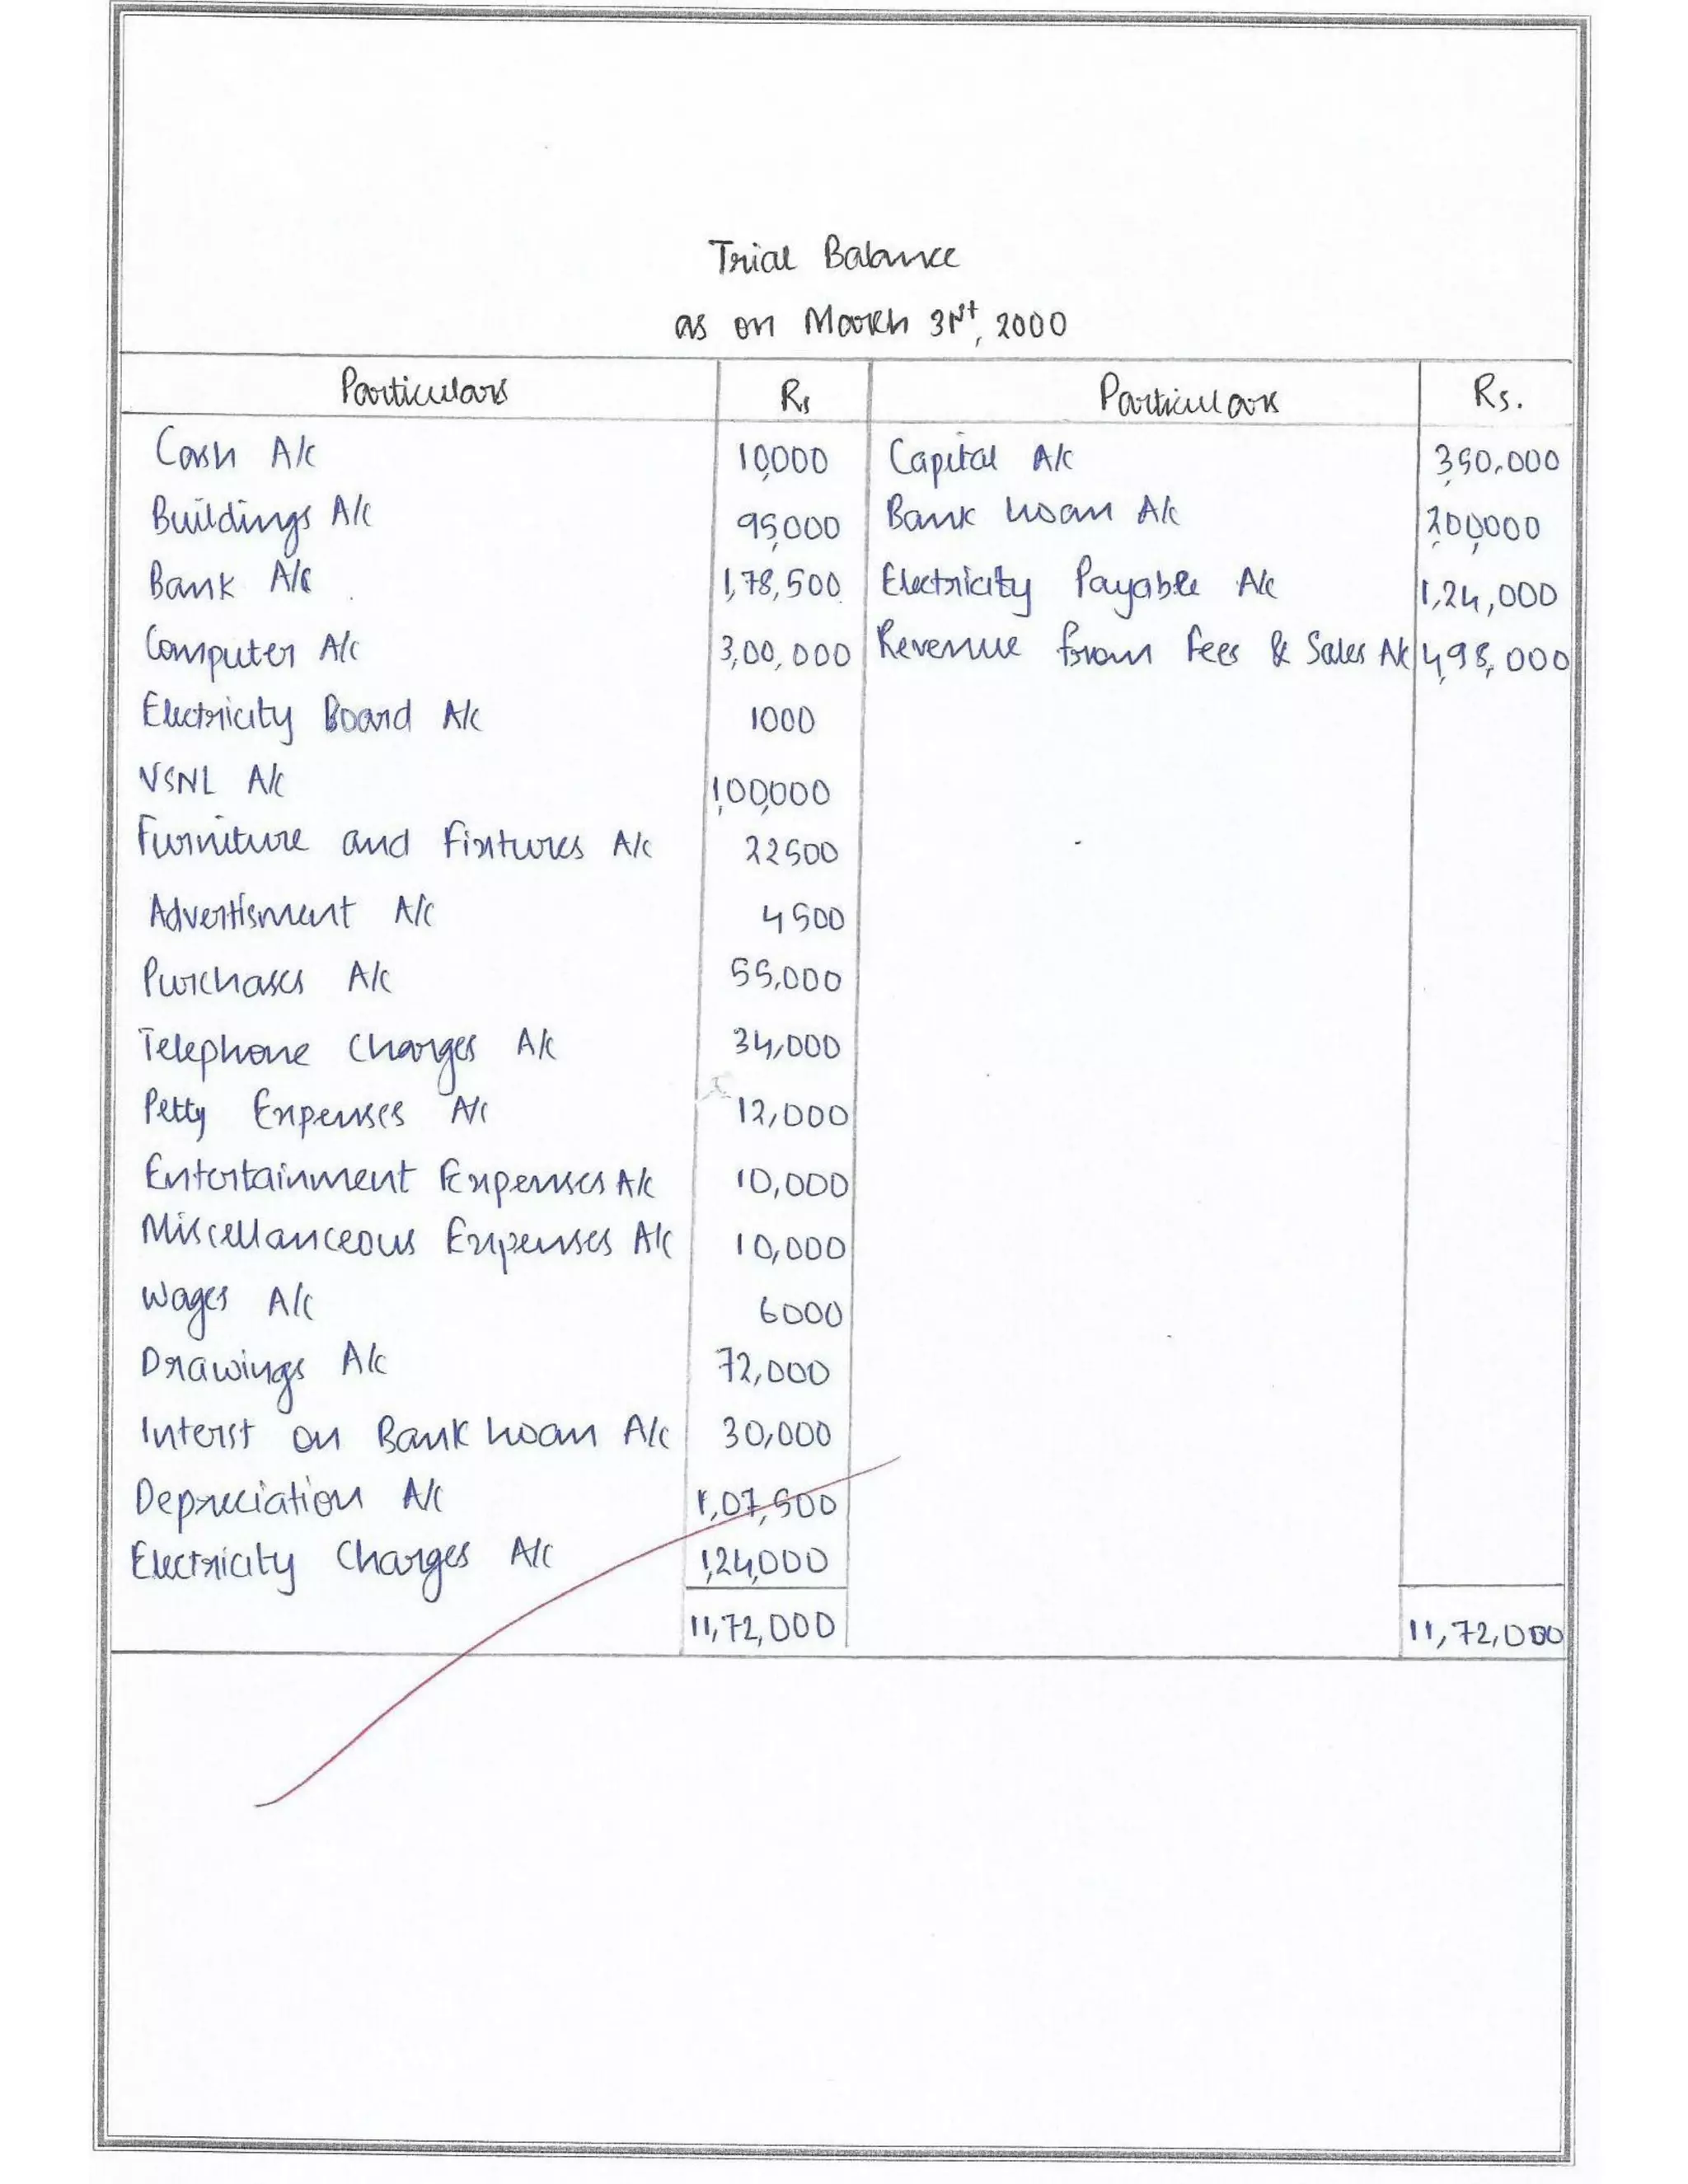 Trial Balance
as on March 31st, 2000
Particulars Rs Particulars Rs.
Cash A/c 10,000 Capital A/c 3,50,000
Buildings A/c 95,000 Bank Loan A/c 2,00,000
Bank A/c 1,78,500 Electricity Payable A/c 1,24,000
Computer A/c 3,00,000 Revenue from Fees & Sales A/c 4,98,000
Electricity Board A/c 1000
VSNL A/c 1,00,000
Furniture and Fixtures A/c 22500
Advertisment A/c 4500
Purchases A/c 55,000
Telephone Charges A/c 34,000
Petty Expenses A/c 12,000
Entertainment Expenses A/c 10,000
Miscellanceous Expenses A/c 10,000
Wages A/c 6000
Drawings A/c 72,000
Interst on Bank Loan A/c 30,000
Depreciation A/c 1,07,500
Electricity Charges A/c 1,24,000
11,72,000 11,72,000